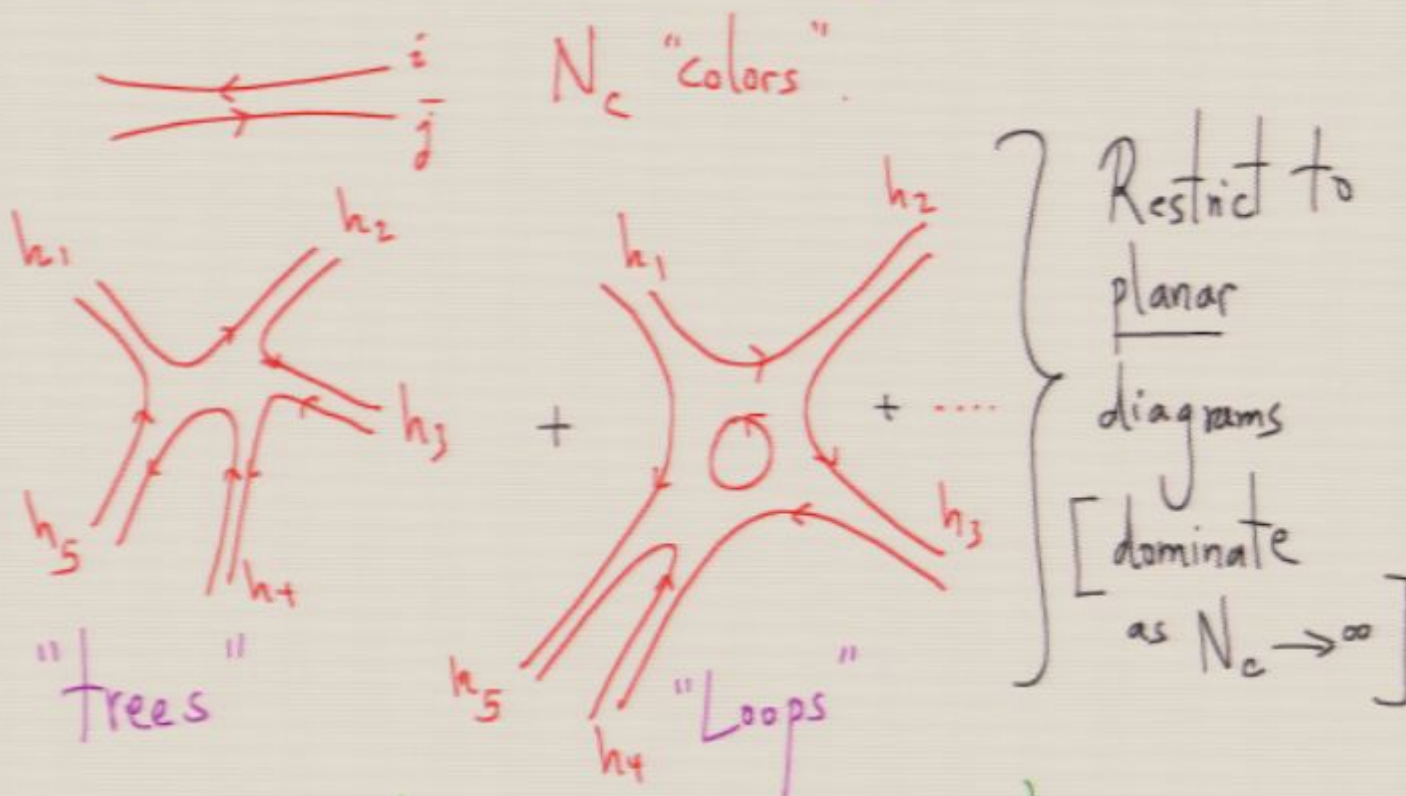 i
j̄
N_c "colors".
h_1
h_2
h_3
h_4
h_5
"trees"
+
h_1
h_2
h_3
h_4
h_5
"Loops"
+ ....
Restrict to
planar
diagrams
[dominate
as N_c → ∞]